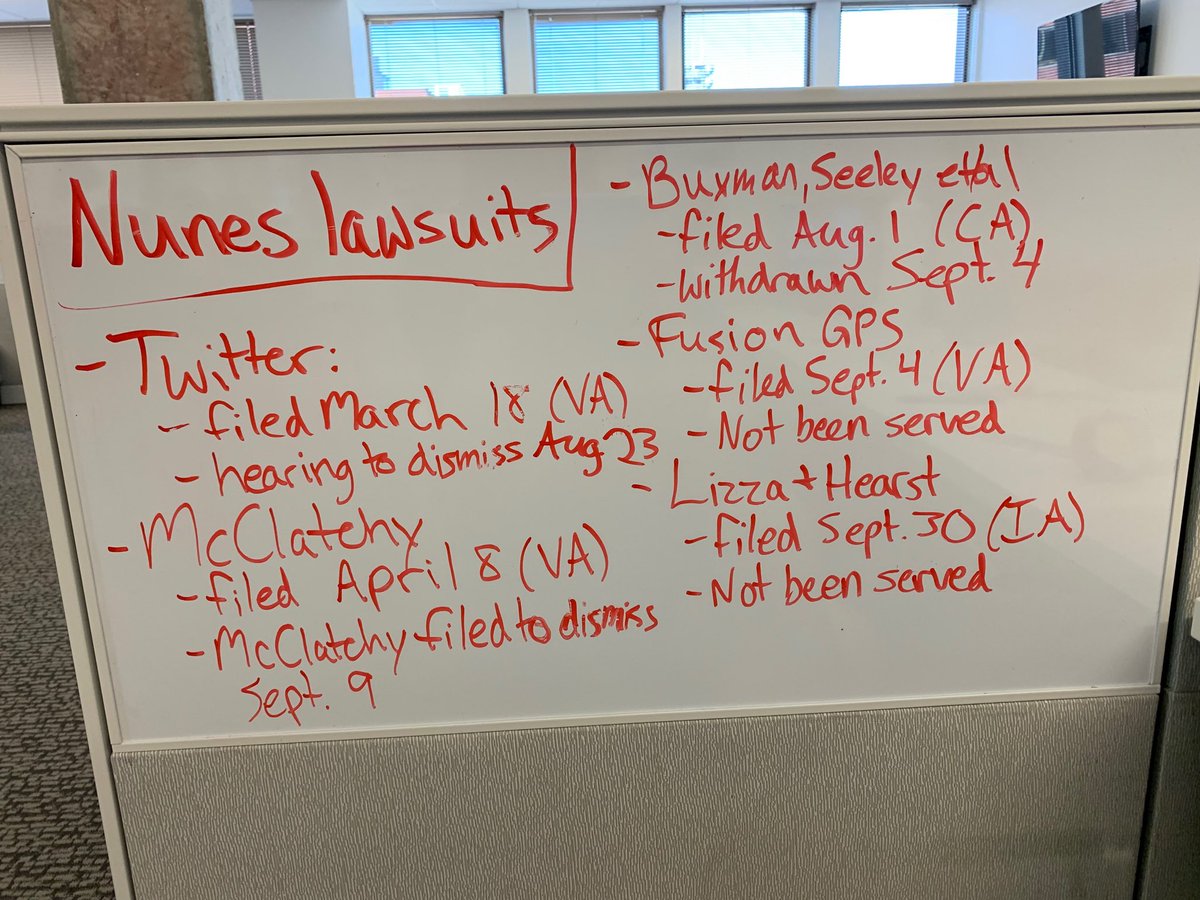 Nunes lawsuits
- Twitter:
- filed March 18 (VA)
- hearing to dismiss Aug 23
- McClatchy
- filed April 8 (VA)
- McClatchy filed to dismiss
Sept. 9
- Buxman, Seeley et al
- filed Aug. 1 (CA)
- withdrawn Sept. 4
- Fusion GPS
- filed Sept. 4 (VA)
- Not been served
- Lizza + Hearst
- filed Sept. 30 (IA)
- Not been served